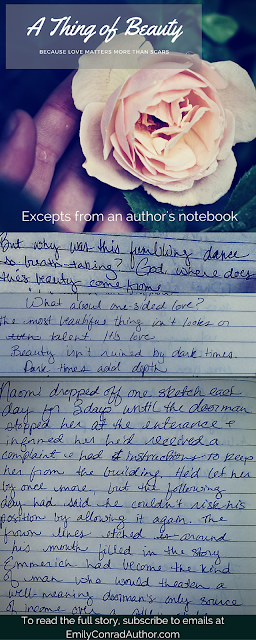 A Thing of Beauty
BECAUSE LOVE MATTERS MORE THAN SCARS
Excepts from an author's notebook
But why was this fumbling dance
so breath taking? God, where does
this beauty come from
What about one-sided love?
The most beautiful thing isn't looks or
talent. It's love
Beauty isn't ruined by dark times.
Dark times add depth
Naomi dropped off one sketch each
day for 3 days until the doorman
stopped her at the entrance &
informed her he'd received a
complaint & had instructions to keep
her from the building. He'd let her
by once more, but the following
day had said he couldn't risk his
position by allowing it again. The
frown lines etched around
his mouth filled in the story
Emmerich had become the kind
of man who would threaten a
well-meaning doorman's only source
of income over a
To read the full story, subscribe to emails at
EmilyConradAuthor.com